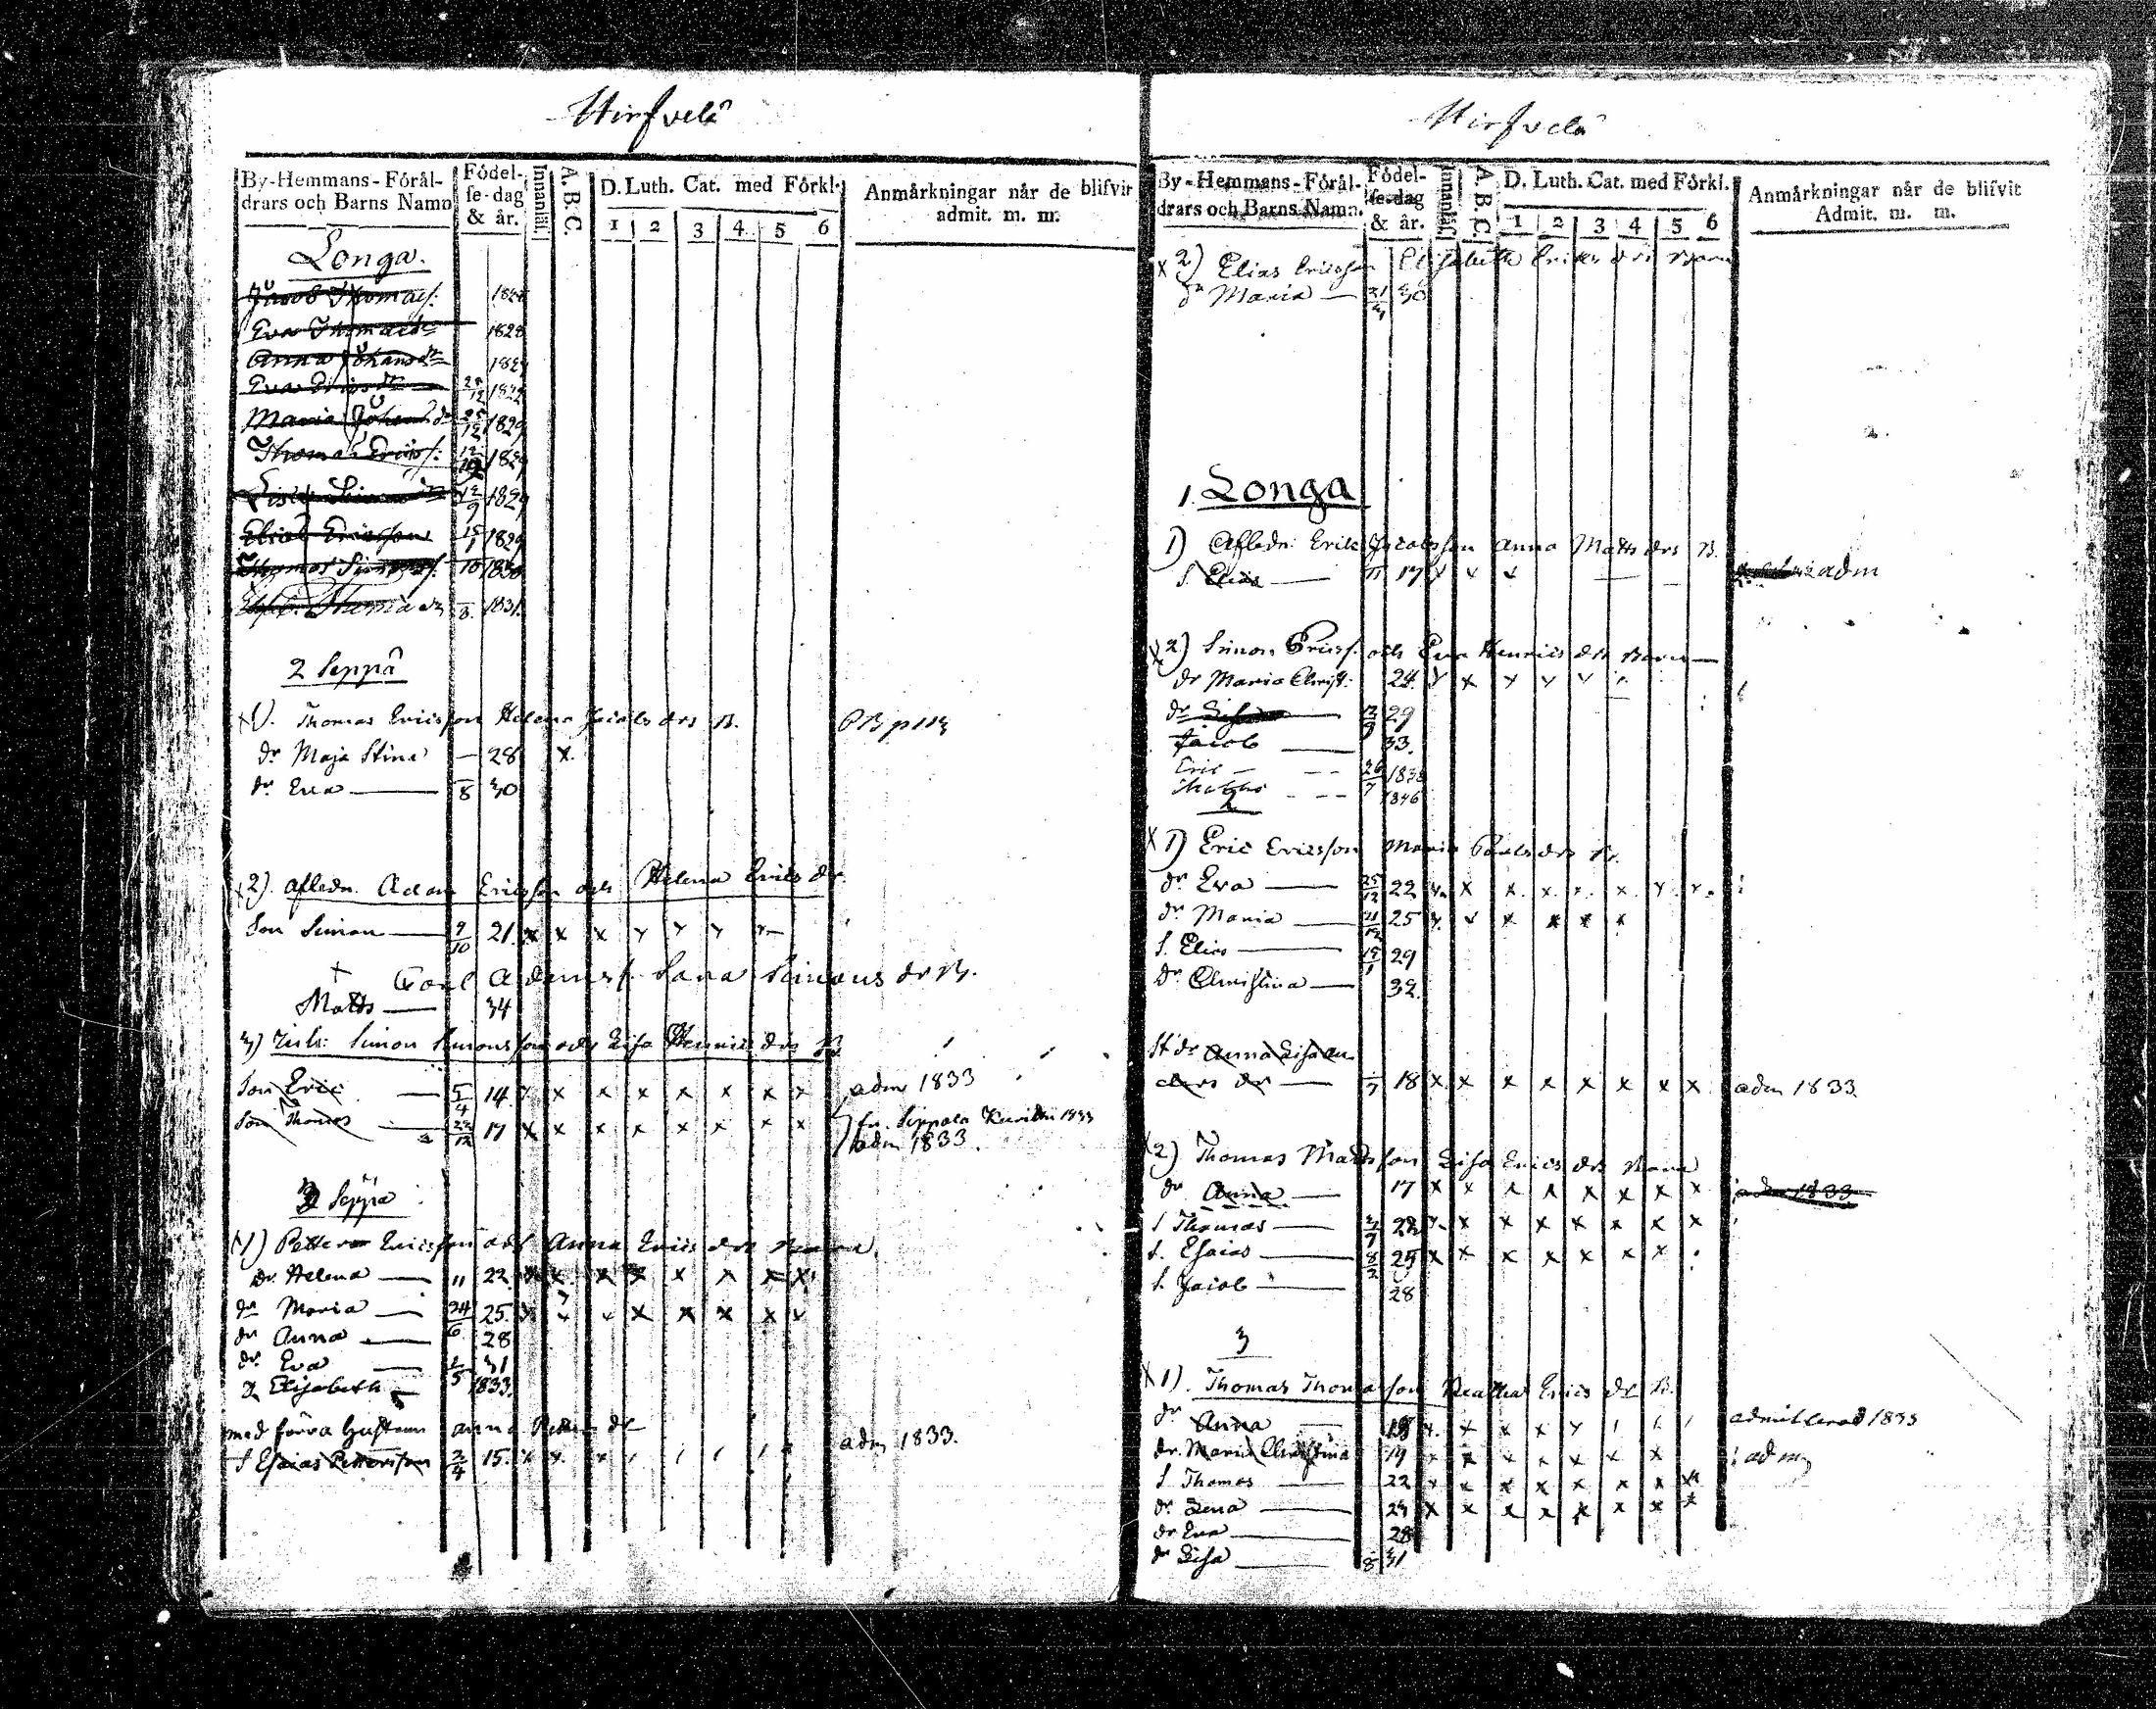 Hirfvelä
By-Hemmans-Förål-
drars och Barns Namn
Födel-
se-dag
& år.
Innanläs.
A. B. C.
D. Luth. Cat. med Förkl.
1 2 3 4 5 6
Anmårkningar når de blifvit
admit. m. m.
Longa.
Jacob Thomass: 1828
Eva Thomasdr 1828
Anna Johansdr 1829
Eva Ericsdr 1829
Maria Johansdr 25/12 1829
Thomas Ericss: 1829
Lisa Simonsdr 9 1829
Elias Ericsson 15/1 1829
Thomas Simonss: 10 1830
Thomasdr 8 1831
2 Seppä
x1). Thomas Ericsson Helena Jacobs drs B.
dr Maja Stina — 28 x
dr Eva — 8 30
x2). afledn. Adam Ericsson och Helena Erics dr
Son Simon — 9/10 21 x x x x x x x
x Carl Adamss. Sara Simons dr B.
Matts — 34
3) Simon Simonsson och Lisa Henrics drs B
Son Eric — 5/4 14 x x x x x x x x adm 1833
Son Thomas — 22/12 17 x x x x x x x x fr. Seppälä 1833
adm 1833.
3 Seppä
x1) Petter Ericsson och Anna Erics drs Barn.
Dr. Helena — 11 22 x x x x x x x x
dr Maria — 24/6 25. x x x x x x x x
dr Anna — 28
dr. Eva — 5 31
dr Elisabeth — 1833.
med förra hustrun Anna Petters dr
S Esaias Pettersson 2/4 15. adm 1833.
Hirfvelä
By-Hemmans-Förål-
drars och Barns Namn.
Födel-
se-dag
& år.
Innanläs.
A. B. C.
D. Luth. Cat. med Förkl.
1 2 3 4 5 6
Anmårkningar når de blifvit
Admit. m. m.
x 2) Elias Ericsson Elisabeth Erics drs Barn
dr Maria — 30
1. Longa
1) Afledn: Eric Jacobsson Anna Matts drs B.
S. Elias — 11 17 x x x adm
x2) Simon Ericss. och Eva Henrics drs Barn —
dr Maria Christ: 24 x x x x x
dr Lisa — 9 29
Jacob — 33.
Eric — 26/7 1838
1846
2
x 1) Eric Ericsson Maria Pauls drs B.
dr Eva — 25/12 22 x x x x x x x x
dr Maria — 25 x x x x x x
S. Elias — 15/1 29
Dr. Christina — 32.
dr Anna Lisa
— 7 18 x x x x x x x x adm 1833.
x2) Thomas Mattsson Lisa Erics drs Barn
dr Anna — 17 x x x x x x x x adm 1833
S Thomas — 7 22 x x x x x x x x
S. Esaias — 8/2 25 x x x x x x x
S. Jacob — 28
3
x 1). Thomas Thomasson Beatha Erics dr B.
dr Anna — 18 x x x x x admitterad 1833
dr. Maria Christina 19 x x x x x x x adm
S Thomas — 22 x x x x x x x x
dr Lena — 24 x x x x x x x x
dr Eva — 28
dr Lisa — 8 31